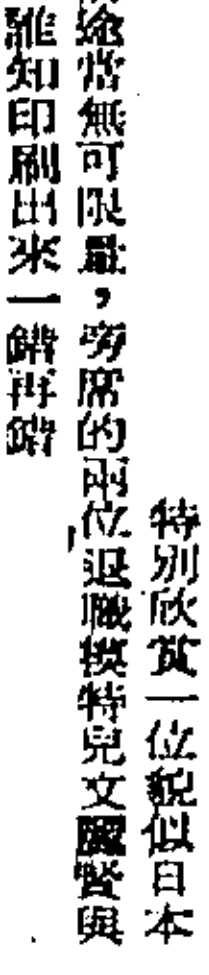 特別欣賞一位貌似日本
途當無可限量，旁席的兩位退職模特兒文國賢與
誰知印刷出來一錯再錯